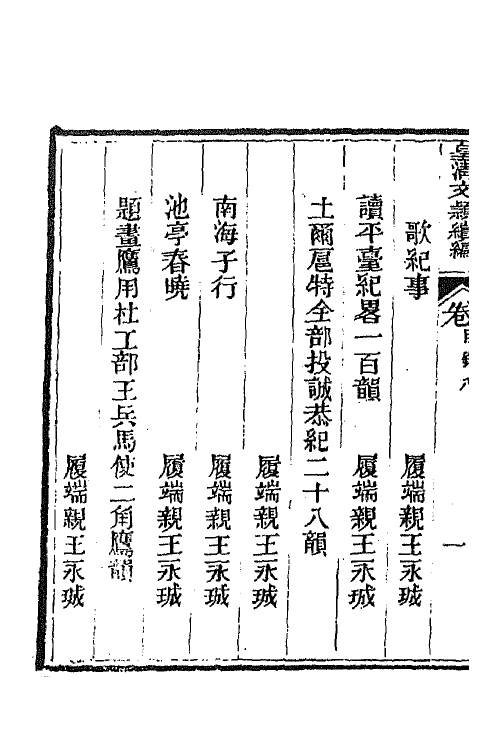 皇清文穎續編 卷目錄八 一
歌紀事 履端親王永珹
讀平臺紀畧一百韻 履端親王永珹
土爾扈特全部投誠恭紀二十八韻
履端親王永珹
南海子行 履端親王永珹
池亭春曉 履端親王永珹
題畫鷹用杜工部王兵馬使二角鷹韻
履端親王永珹